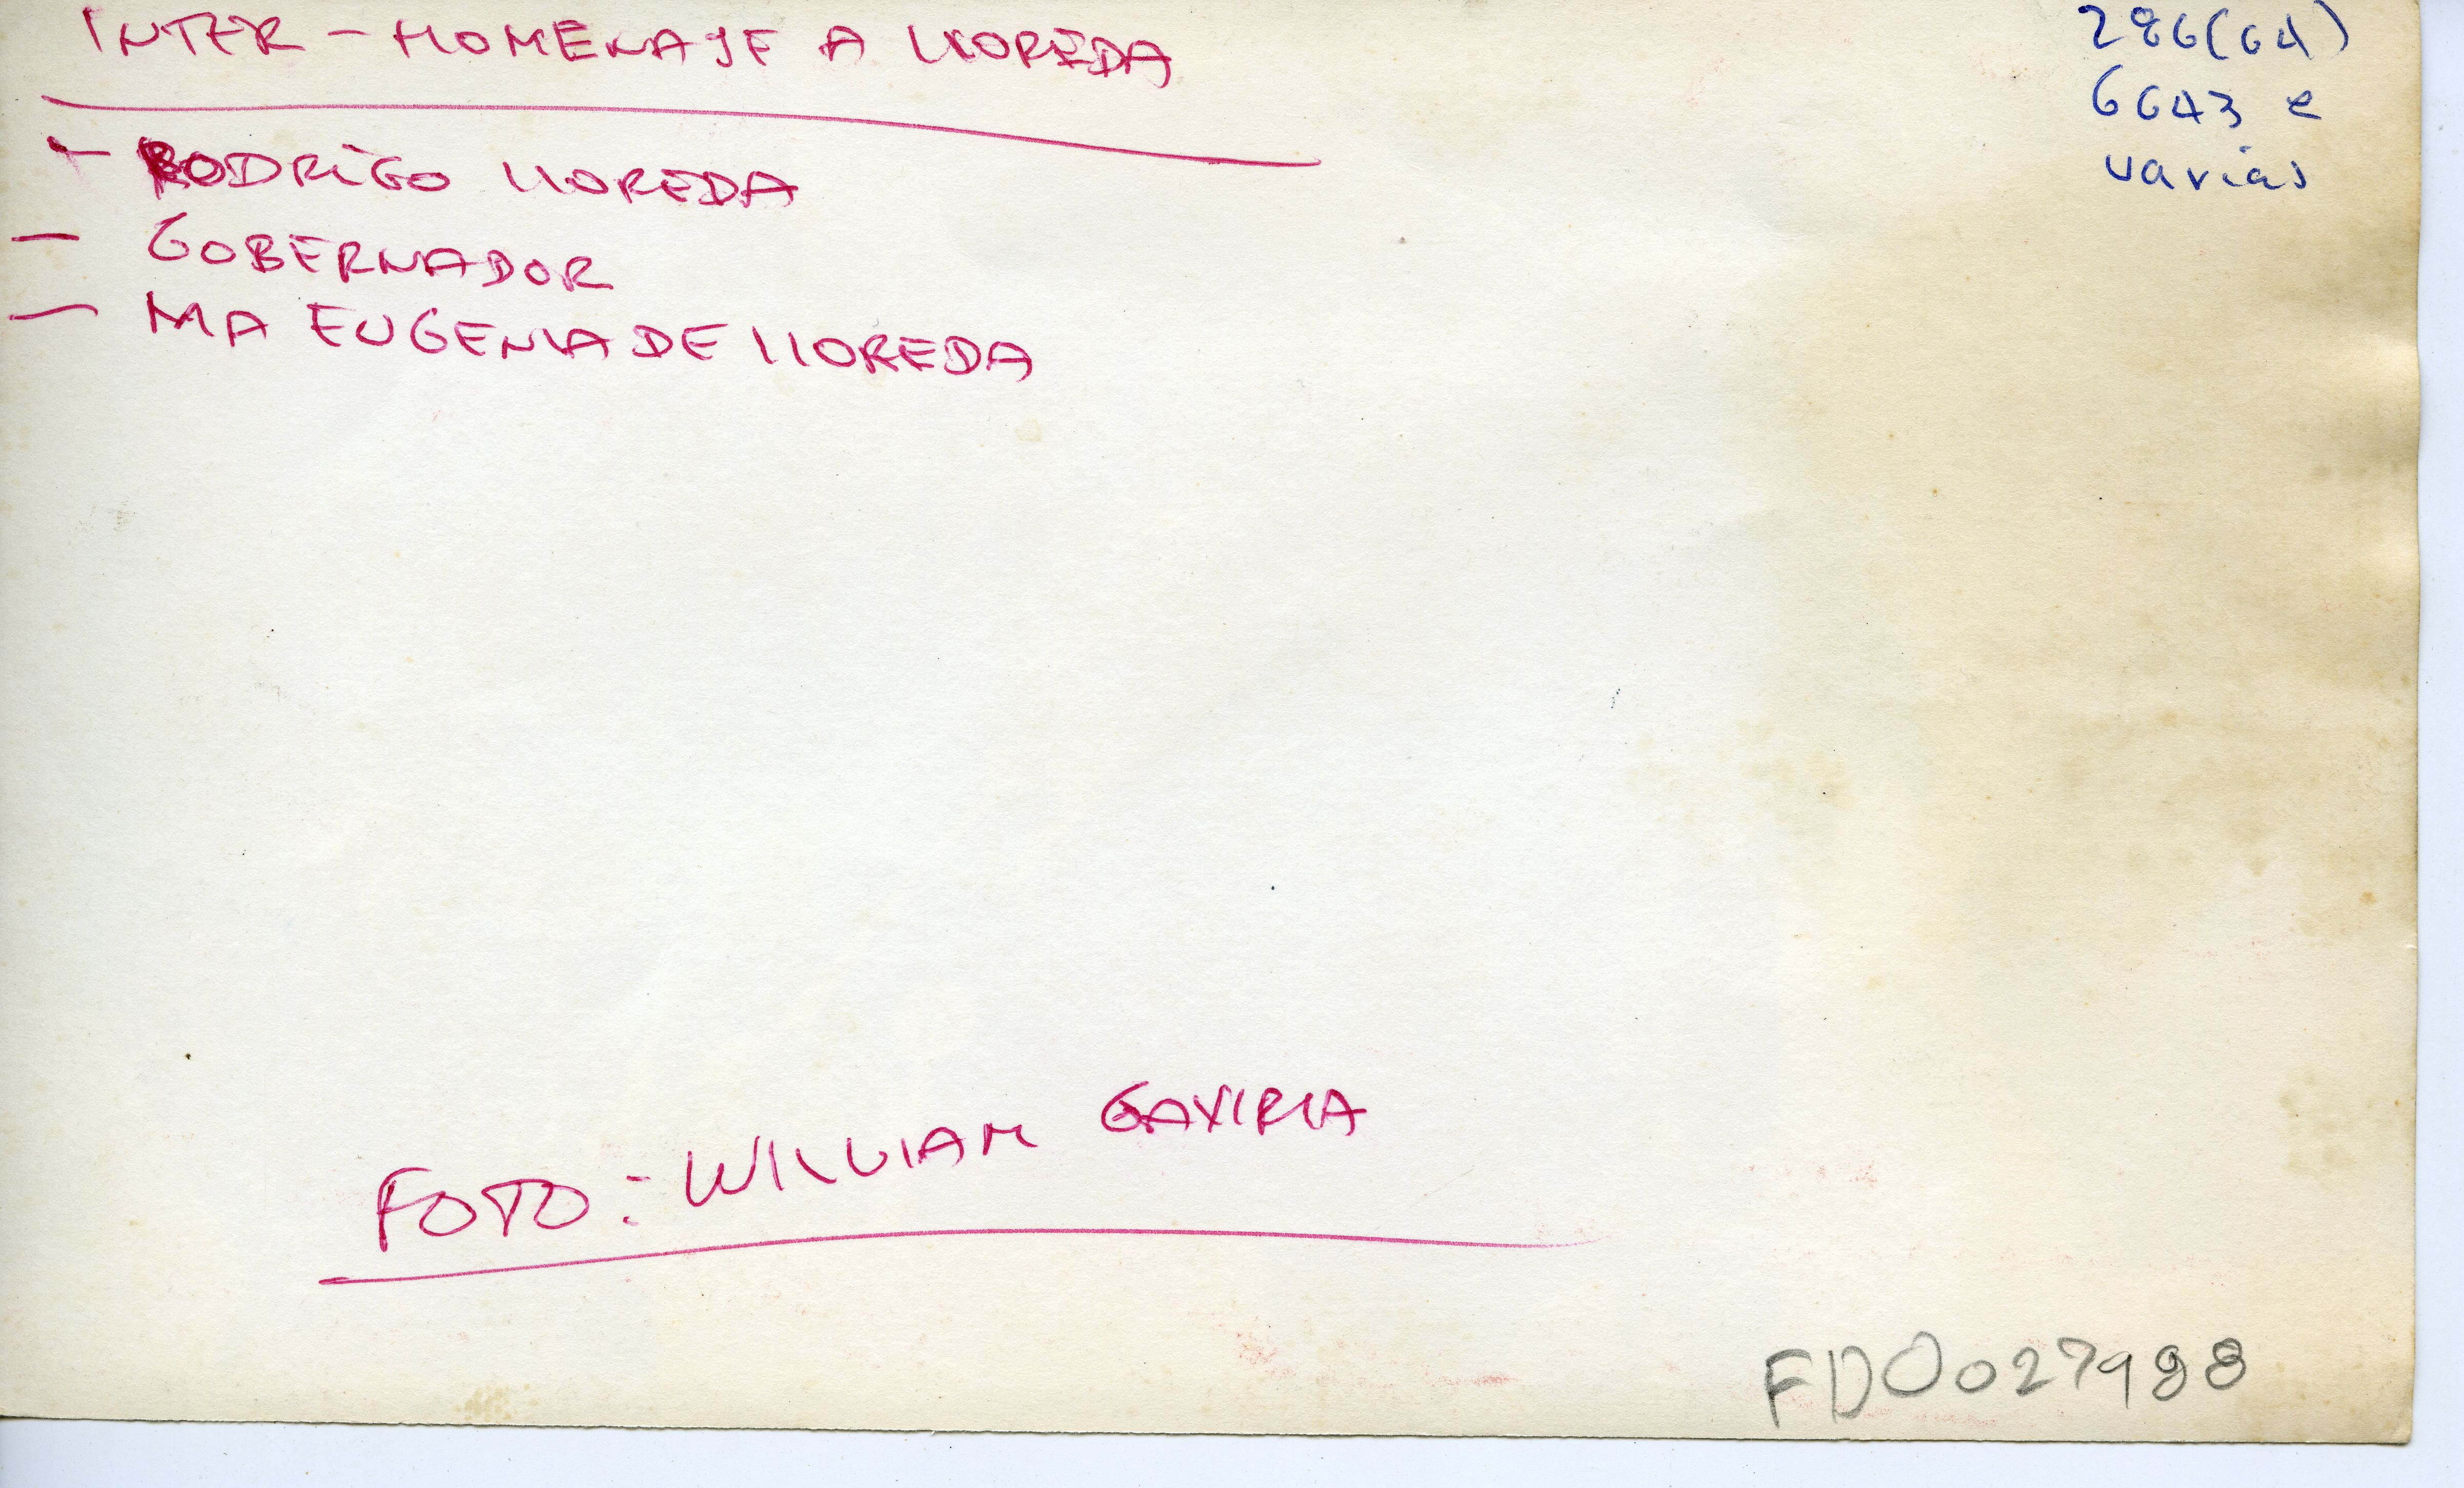 INTER - HOMENAJE A LLOREDA
286(64)
6643 e
varias
- RODRIGO LLOREDA
- GOBERNADOR
- MA EUGENIA DE LLOREDA
FOTO: WILLIAM GAVIRIA
FD0027988